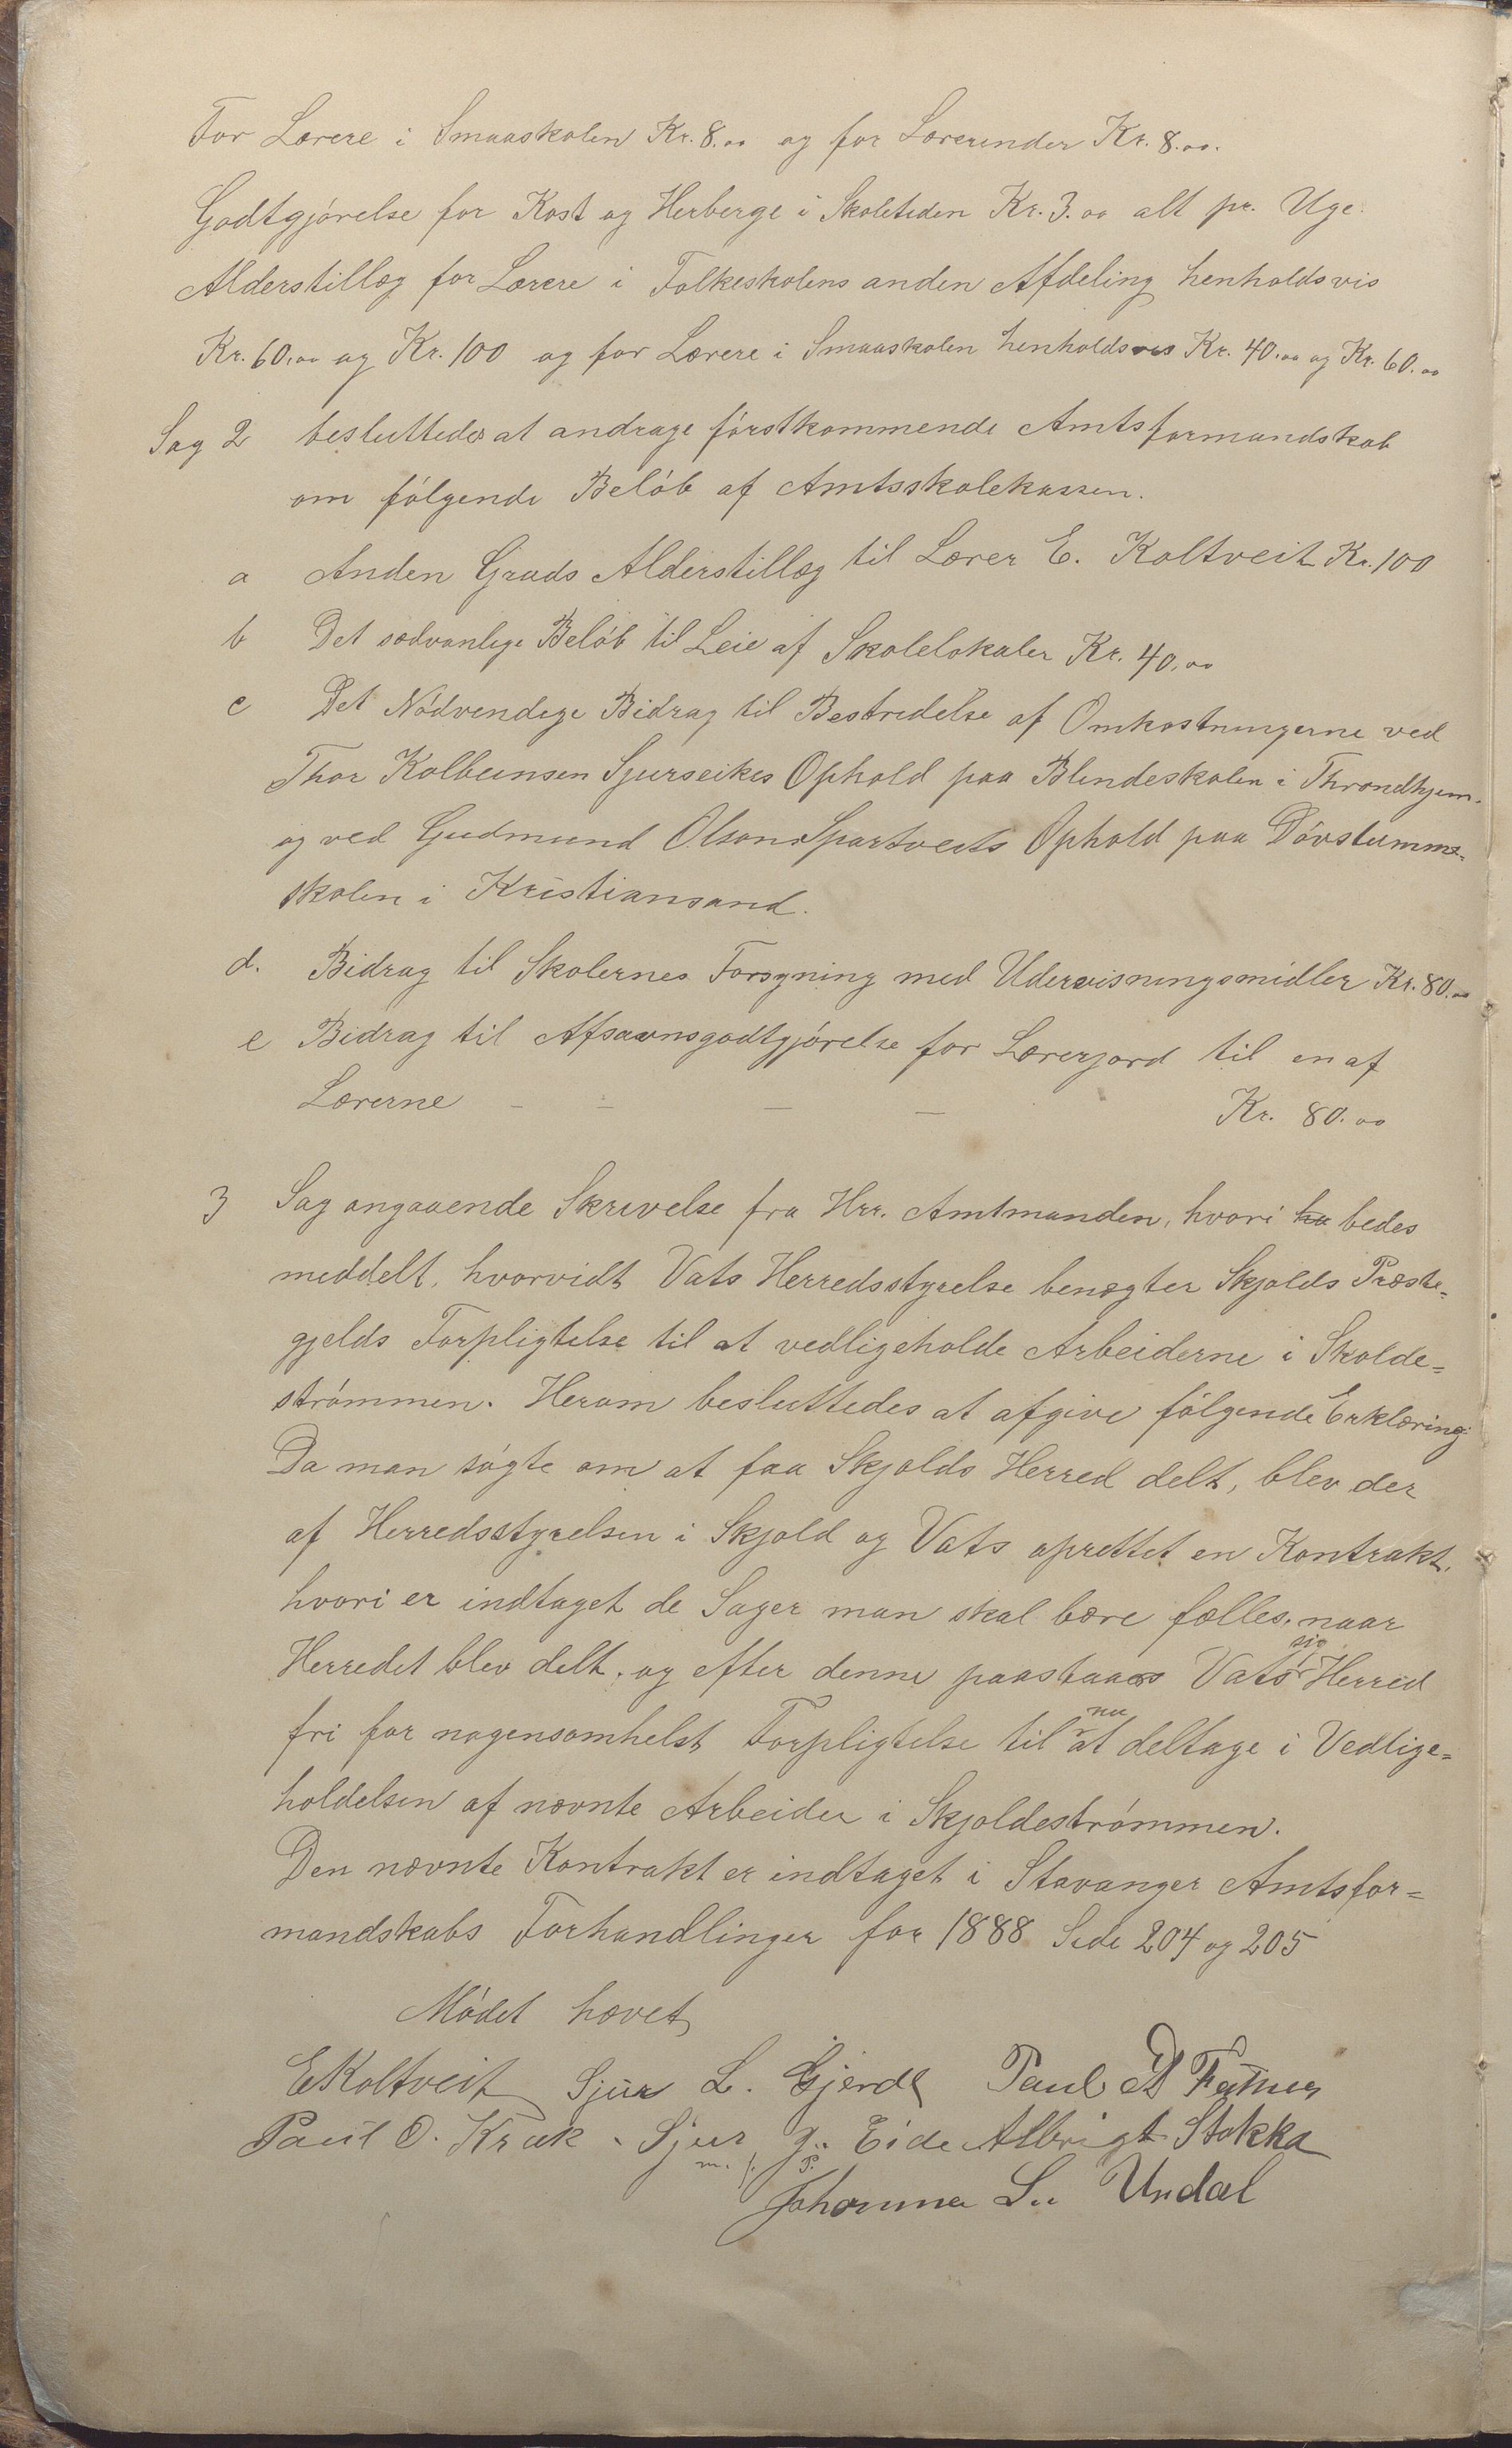 For Lærere i Smaaskolen Kr. 8.00 og for Lærerinder Kr. 8.00.
Godtgjórelse for Kost og Herberge i Skoletiden Kr. 3.00 alt pr. Uge.
Alderstillæg for Lærere i Folkeskolens anden Afdeling henholdsvis
Kr. 60.00 og Kr. 100 og for Lærere i Smaaskolen henholdsvis Kr. 40.00 og Kr. 60.00
Sag 2 besluttedes at andrage fórstkommende Amtsformandskab
om fólgende Belób af Amtsskolekassen.
a Anden Grads Alderstillæg til Lærer E. Koltveit Kr. 100
b Det sædvanlige Belób til Leie af Skolelokaler Kr. 40.00
c Det Nódvendige Bidrag til Bestridelse af Omkostningerne ved
Thor Kolbeinsen Sjurseikes Ophold paa Blindeskolen i Throndhjem.
og ved Gudmund Olson Spartveits Ophold paa Dóvstumme=
skolen i Kristiansand.
d. Bidrag til Skolernes Forsyning med Udervisningsmidler Kr. 80.00
e Bidrag til Afsavnsgodtgjórelse for Lærerjord til en af
Lærerne - - - - Kr. 80.00
3 Sag angaaende Skrivelse fra Hrr. Amtmanden, hvori bedes
meddelt, hvorvidt Vats Herredsstyrelse benægter Skjolds Præste=
gjelds Forpligtelse til at vedligeholde Arbeiderne i Skolde=
strómmen. Herom besluttedes at afgive fólgende Erklæring:
Da man sógte om at faa Skjolds Herred delt, blev der
af Herredsstyrelsen i Skjold og Vats oprettet en Kontrakt,
hvori er indtaget de Sager man skal bære fælles, naar
Herredet blev delt, og efter denne paastaar Vats sig Herred
fri for nogensomhelst Forpligtelse til nu at deltage i Vedlige=
holdelsen af nævnte Arbeider i Skjoldestrómmen.
Den nævnte Kontrakt er indtaget i Stavanger Amtsfor=
mandskabs Forhandlinger for 1888 Side 204 og 205
Módet hævet
EKoltveit Sjur L. Gjerde Paul
Paul O. Krak Sjur J. Eide Albrigt Stokka
m. f. P.
Johannes L. Undal